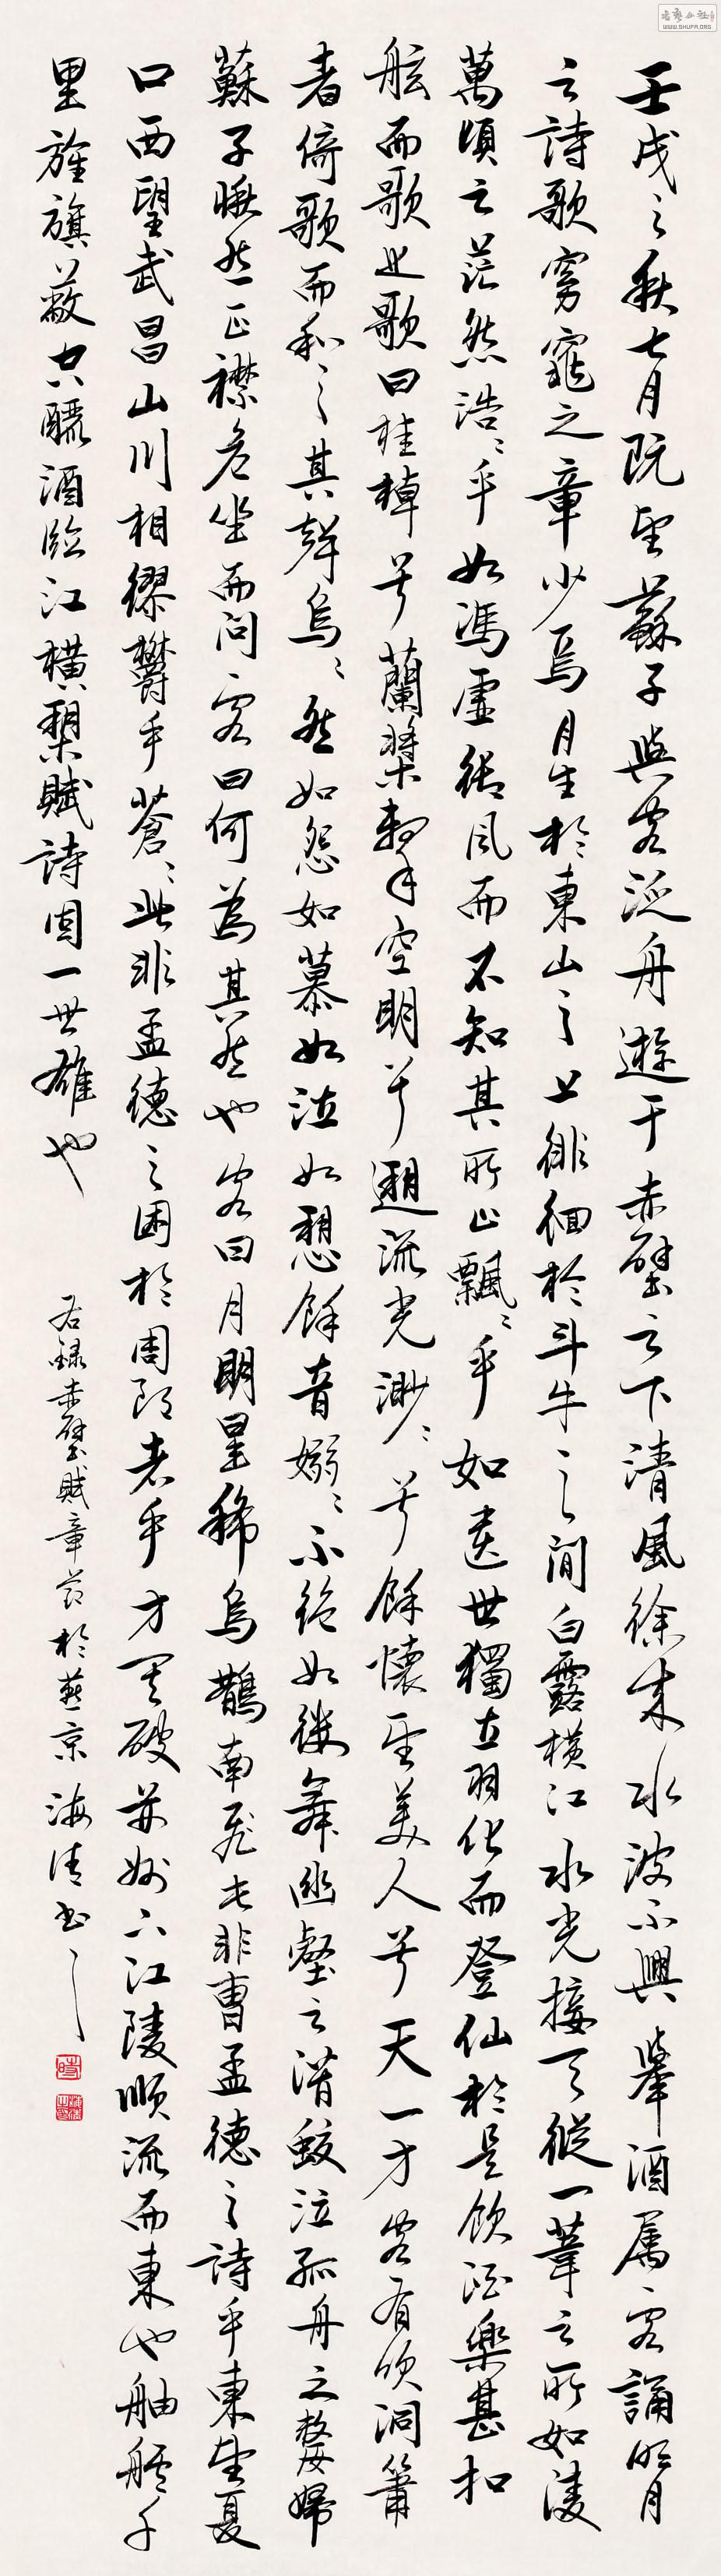 壬戌之秋七月既望蘇子與客泛舟遊于赤壁之下清風徐來水波不興舉酒屬客誦明月
之詩歌窈窕之章少焉月生於東山之上徘徊於斗牛之間白露橫江水光接天縱一葦之所如淩
萬頃之茫然浩〻乎如馮虛御風而不知其所止飄〻乎如遺世獨立羽化而登仙於是飲酒樂甚扣
舷而歌之歌曰桂棹兮蘭槳擊空明兮遡流光渺〻兮餘懷望美人兮天一方客有吹洞簫
者倚歌而和之其聲烏〻然如怨如慕如泣如愬餘音嫋〻不絕如縷舞幽壑之潛蛟泣孤舟之嫠婦
蘇子愀然正襟危坐而問客曰何為其然也客曰月明星稀烏鵲南飛此非曹孟德之詩乎東望夏
口西望武昌山川相繆鬱乎蒼〻此非孟德之困於周郎者乎方其破荊州下江陵順流而東也舳艫千
里旌旗蔽空釃酒臨江橫槊賦詩固一世雄也
右錄赤壁賦章節於燕京海清書之
WWW.SHUFA.ORG